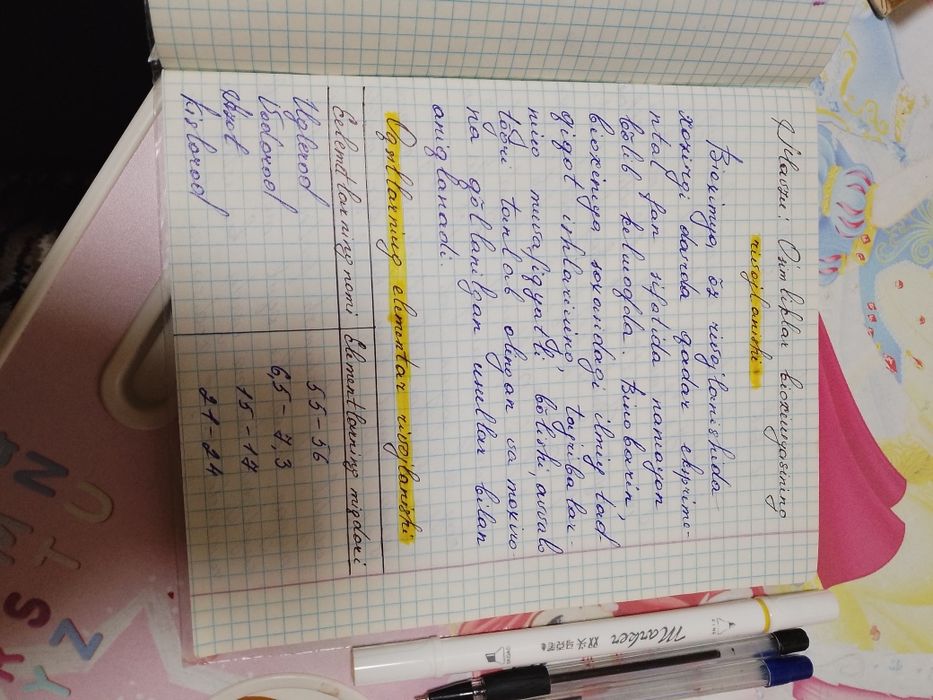 Ilovasi: Osimliklar bioximyasining
rivojlanishi.
Bioximya öz rivojlanishida
xozirgi darada qadar ekprime-
ntal fan sifatida namayon
bölib kelmogda. Binobarin,
bioximya soxasidagi ilmiy tad-
giqot ishlarining, tagribalar-
ning muvafiqyatli bölishi, avvalo
tögri tanlab olingan va moxiro
na göllanilgan usullar bilan
aniqlanadi.
Oqsillarning elementar rivojlanishi
Eelemetlarning nomi Elementlarning miqdori
Uglerod 55-56
Vodorod 6,5-7,3
Azot 15-17
kislorod 21-24
Marker